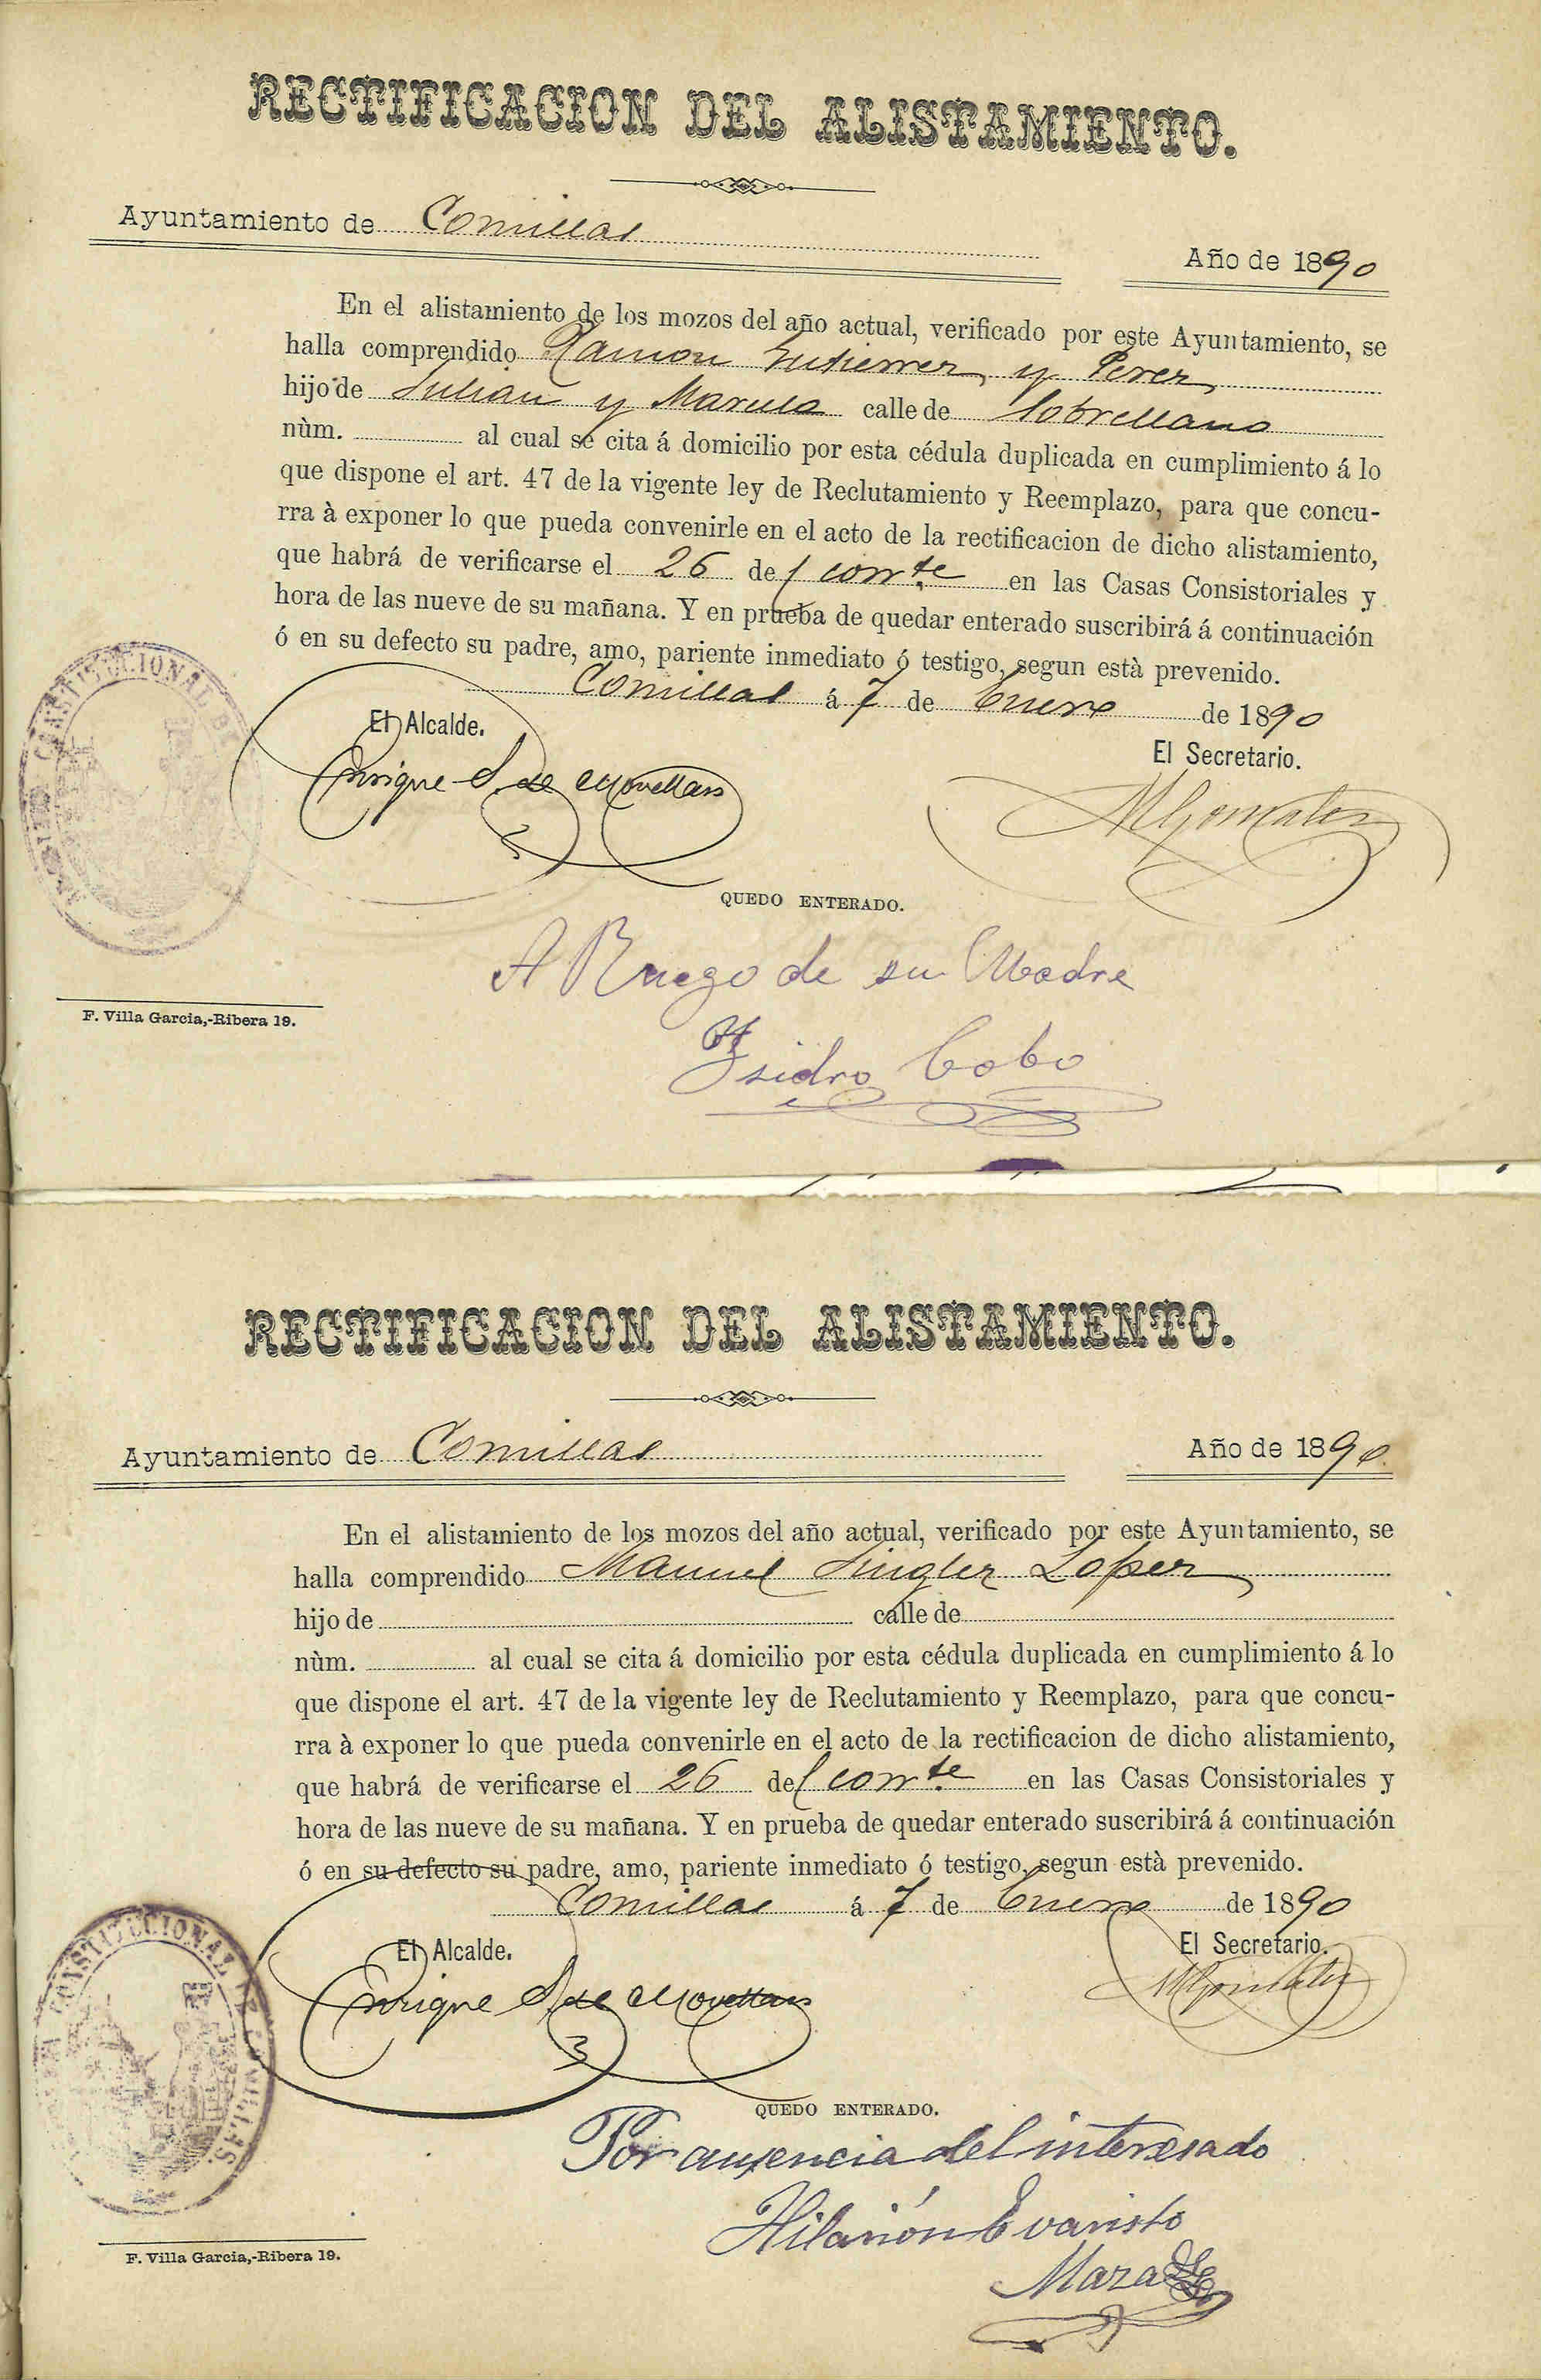 RECTIFICACION DEL ALISTAMIENTO.
Ayuntamiento de Comillas
Año de 1890
En el alistamiento de los mozos del año actual, verificado por este Ayuntamiento, se
halla comprendido Ramon Gutierrez y Perez
hijo de Julian y Marcela calle de Sobrellano
nùm. al cual se cita á domicilio por esta cédula duplicada en cumplimiento á lo
que dispone el art. 47 de la vigente ley de Reclutamiento y Reemplazo, para que concu-
rra à exponer lo que pueda convenirle en el acto de la rectificacion de dicho alistamiento,
que habrá de verificarse el 26 del corrte en las Casas Consistoriales y
hora de las nueve de su mañana. Y en prueba de quedar enterado suscribirá á continuación
ó en su defecto su padre, amo, pariente inmediato ó testigo, segun està prevenido.
Comillas á 7 de Enero de 1890
El Alcalde.
El Secretario.
Enrique S. de Movellan
MGonzalez
QUEDO ENTERADO.
A Ruego de su Madre
Isidro Cobo
F. Villa Garcia,-Ribera 19.
RECTIFICACION DEL ALISTAMIENTO.
Ayuntamiento de Comillas
Año de 1890
En el alistamiento de los mozos del año actual, verificado por este Ayuntamiento, se
halla comprendido Manuel Lopez
hijo de calle de
nùm. al cual se cita á domicilio por esta cédula duplicada en cumplimiento á lo
que dispone el art. 47 de la vigente ley de Reclutamiento y Reemplazo, para que concu-
rra à exponer lo que pueda convenirle en el acto de la rectificacion de dicho alistamiento,
que habrá de verificarse el 26 del corrte en las Casas Consistoriales y
hora de las nueve de su mañana. Y en prueba de quedar enterado suscribirá á continuación
ó en su defecto su padre, amo, pariente inmediato ó testigo, segun està prevenido.
Comillas á 7 de Enero de 1890
El Alcalde.
El Secretario.
Enrique S. de Movellan
MGonzalez
CONSTITUCIONAL DE COMILLAS
QUEDO ENTERADO.
Por ausencia del interesado
Hilarión Evaristo
Maza
F. Villa Garcia,-Ribera 19.